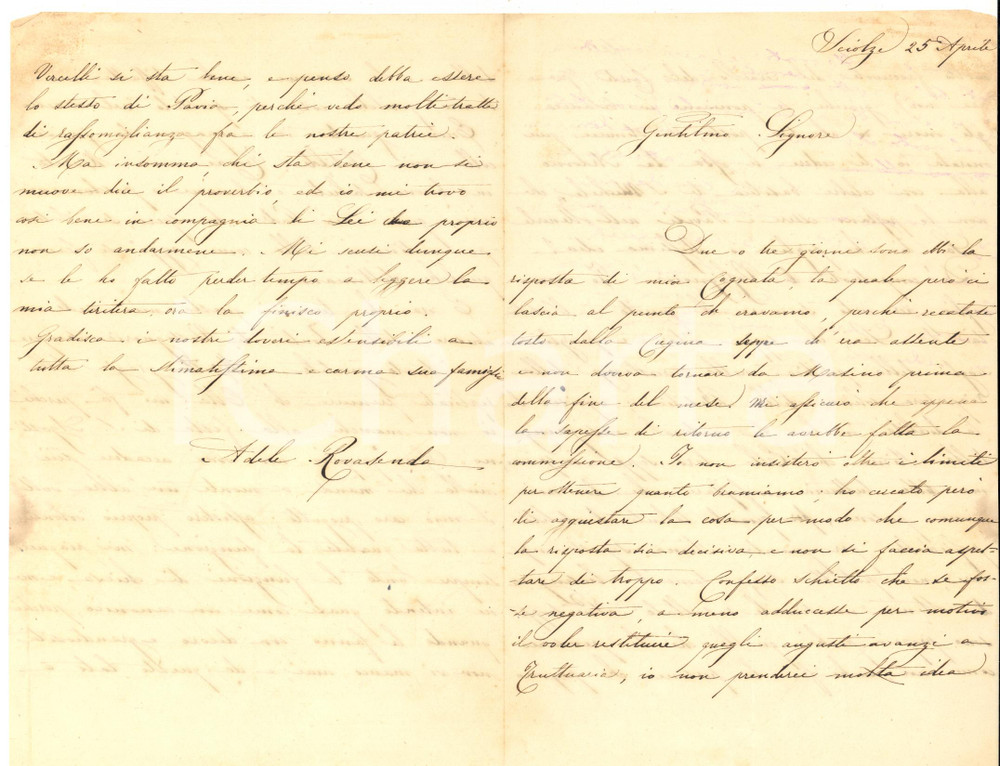 Sciolze 25 Aprile
Gentilmo Signore
Due o tre giorni sono ebbi la
risposta di mia Cognata, la quale però ci
lascia al punto ch'eravamo, perchè recatasi
tosto dalla Cugina seppe ch'era assente
e non doveva tornare da Masino prima
della fine del mese. Mi assicurò che appena
la sapesse di ritorno le avrebbe fatta la
commissione. Io non insisterò oltre i limiti
per ottenere quanto bramiamo; ho cercato però
di aggiustare la cosa per modo che comunque
la risposta sia decisiva, e non si faccia aspet-
-tare di troppo. Confesso schietto che se fos-
-se negativa, a meno adducesse per motivo
il voler restituire quegli augusti avanzi a
Fruttuaria, io non prenderei molta idea
Vercelli si sta bene, e penso debba essere
lo stesso di Pavia, perchè vedo molti tratti
di rassomiglianza fra le nostre patrie.
Ma insomma, chi sta bene non si
muove dice il proverbio, ed io mi trovo
così bene in compagnia di Lei che proprio
non so andarmene. Mi scusi dunque
se le ho fatto perder tempo a leggere la
mia tiritera, ora la finisco proprio.
Gradisca i nostri doveri estensibili a
tutta la stimatissima e carma sua famiglia
Adele Rovasenda